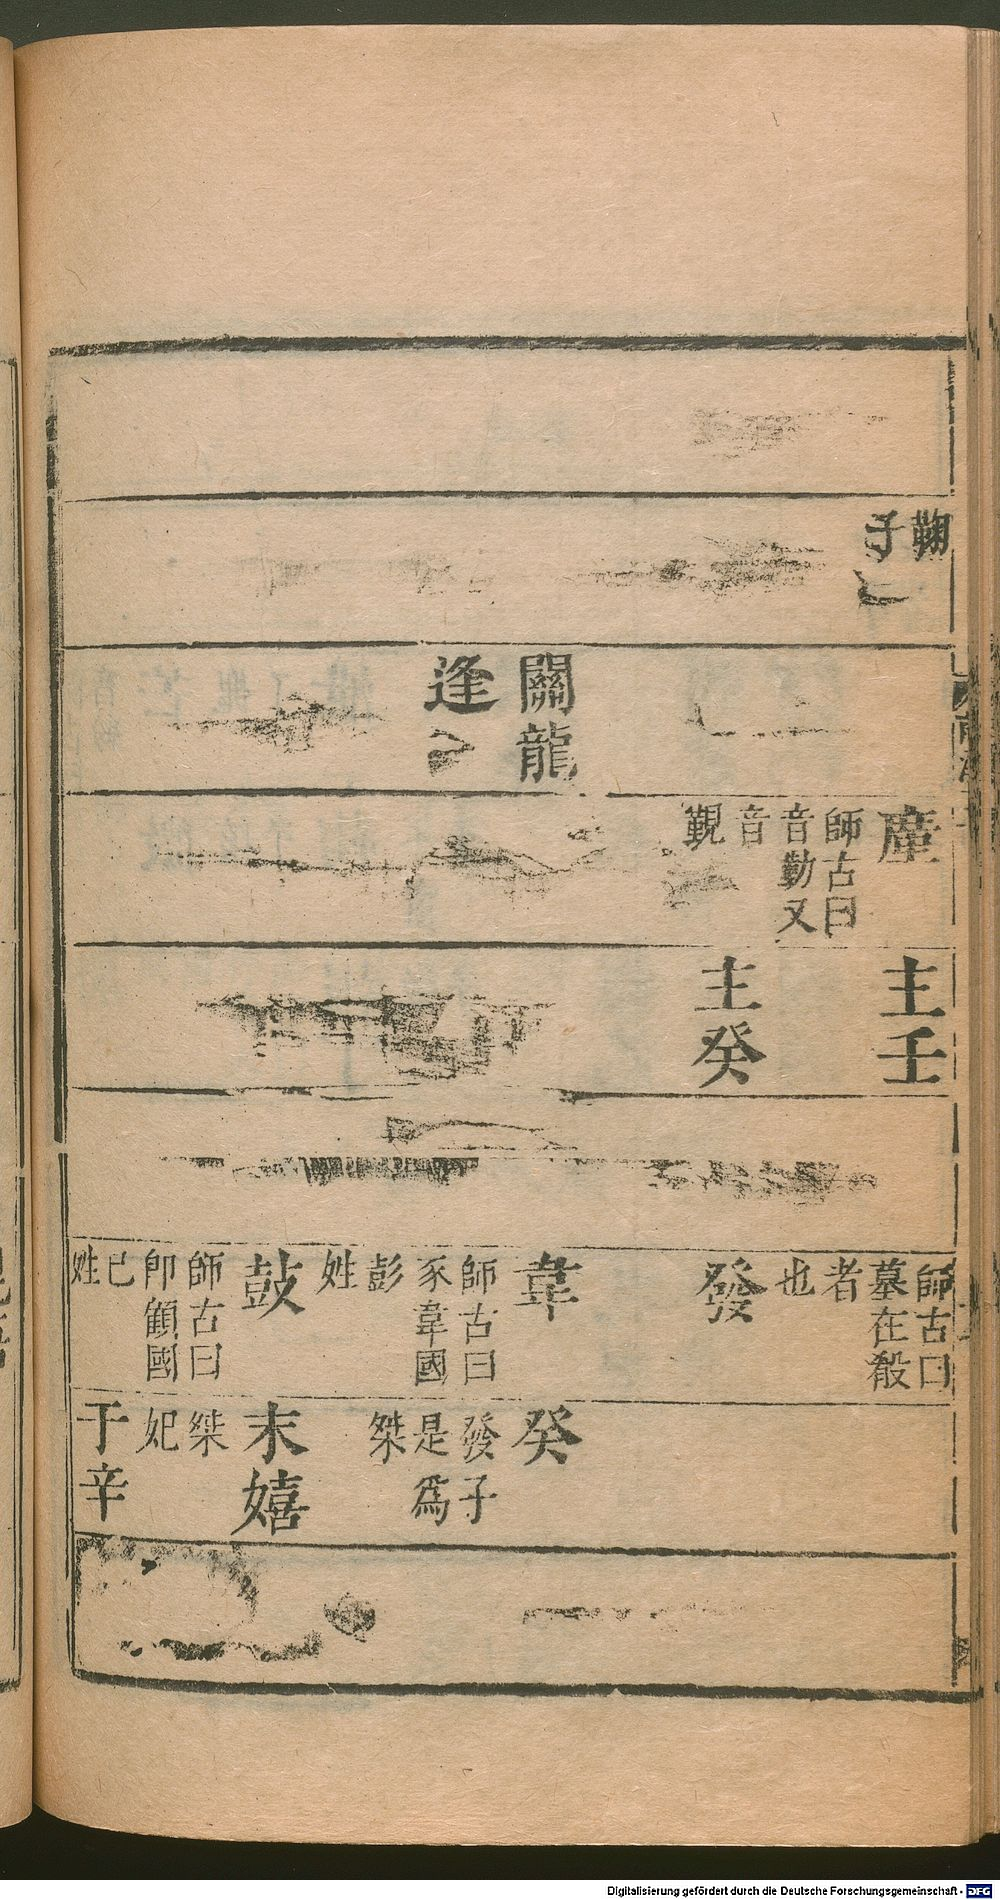 鞠
子
關龍
逢
廑
師古曰
音勤又
音
覲
主壬
主癸
師古曰
墓在殽
者
也
發
韋
師古曰
豕韋國
彭
姓
鼓
師古曰
卽顧國
已
姓
癸
發子
是爲
桀
末嬉
桀
妃
于辛
Digitalisierung gefördert durch die Deutsche Forschungsgemeinschaft - DFG